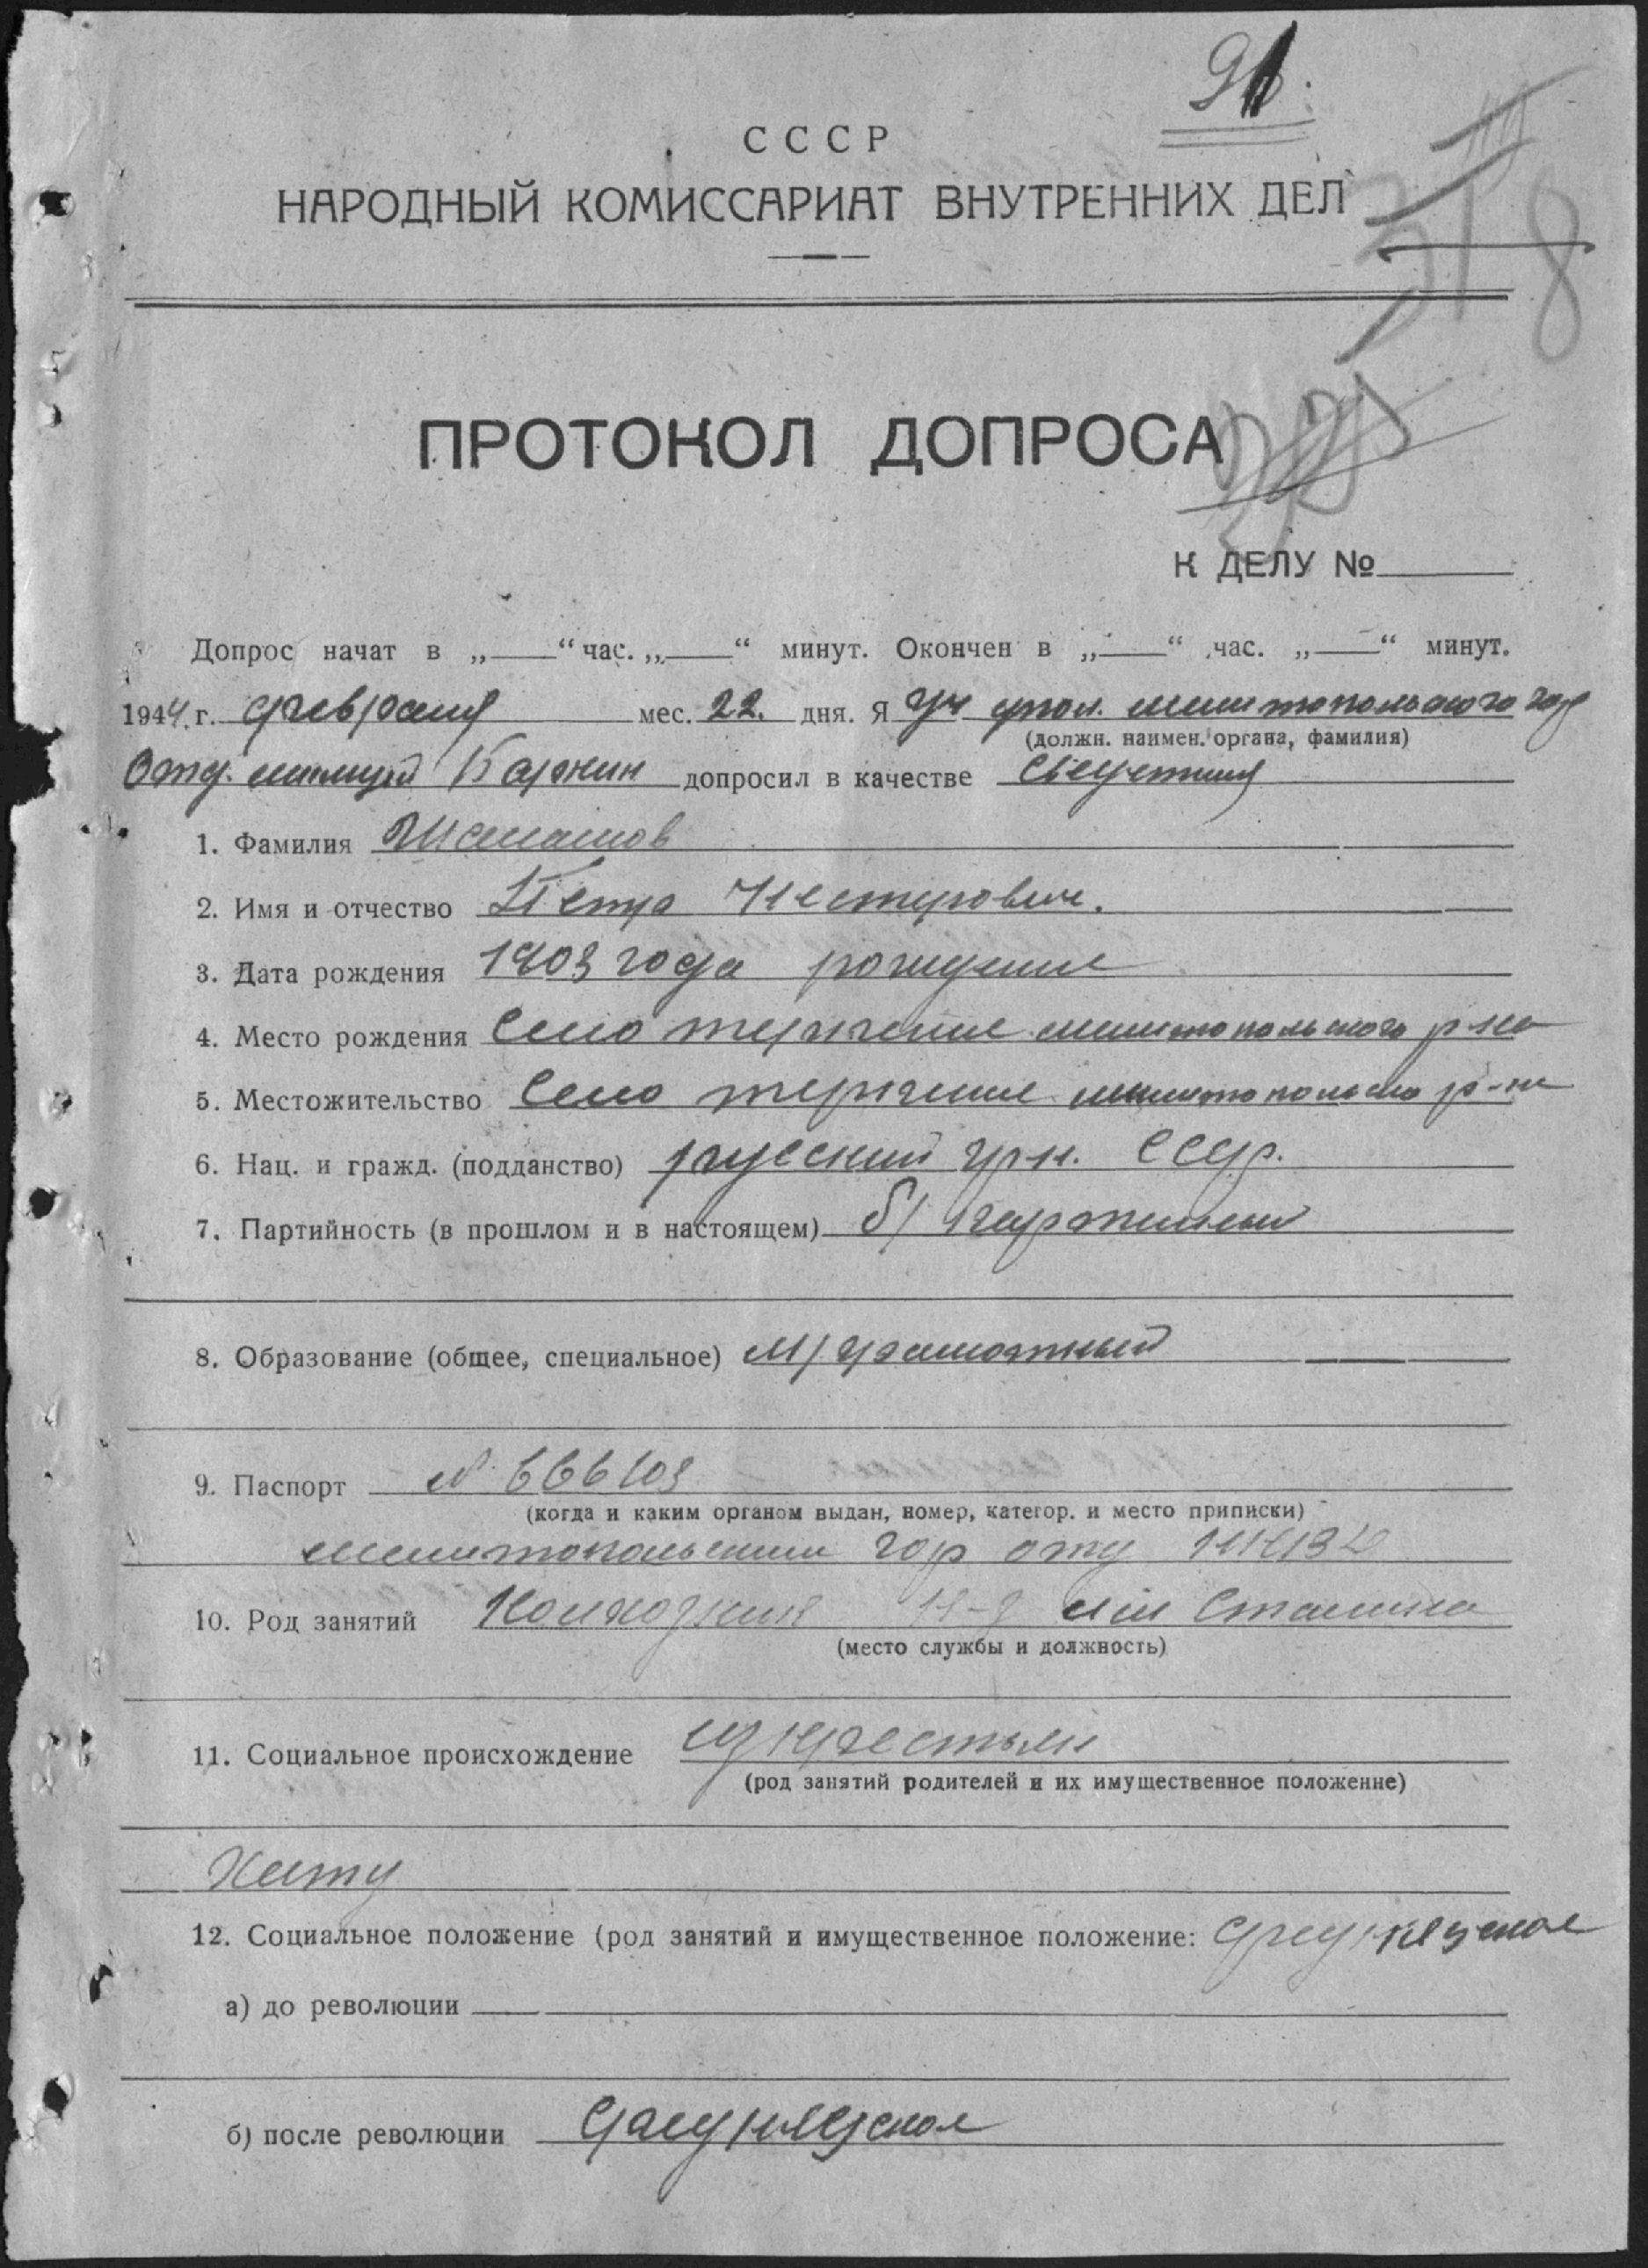 91.
СССР
НАРОДНЫЙ КОМИССАРИАТ ВНУТРЕННИХ ДЕЛ
318
ПРОТОКОЛ ДОПРОСА
К ДЕЛУ №
Допрос начат в „ “ час. „ “ минут. Окончен в „ “ час. „ “ минут.
1944 г. февраля мес. 22. дня. Я уч упол. мелитопольского гор
(должн. наимен. органа, фамилия)
Отд. милиции допросил в качестве свидетеля
1. Фамилия
2. Имя и отчество Петр Нестерович.
3. Дата рождения 1903 года рождения
4. Место рождения Село терпение мелитопольского р-на
5. Местожительство Село терпение р-на
6. Нац. и гражд. (подданство) русский гр-н. СССР.
7. Партийность (в прошлом и в настоящем) б/партийный
8. Образование (общее, специальное) м/грамотный
9. Паспорт № 666103
(когда и каким органом выдан, номер, категор. и место приписки)
мелитопольским гор отд НКВД
10. Род занятий Колхозник к-з им Сталина
(место службы и должность)
11. Социальное происхождение из крестьян
(род занятий родителей и их имущественное положение)
Хату
12. Социальное положение (род занятий и имущественное положение: середняцкое
а) до революции
б) после революции середняцкое